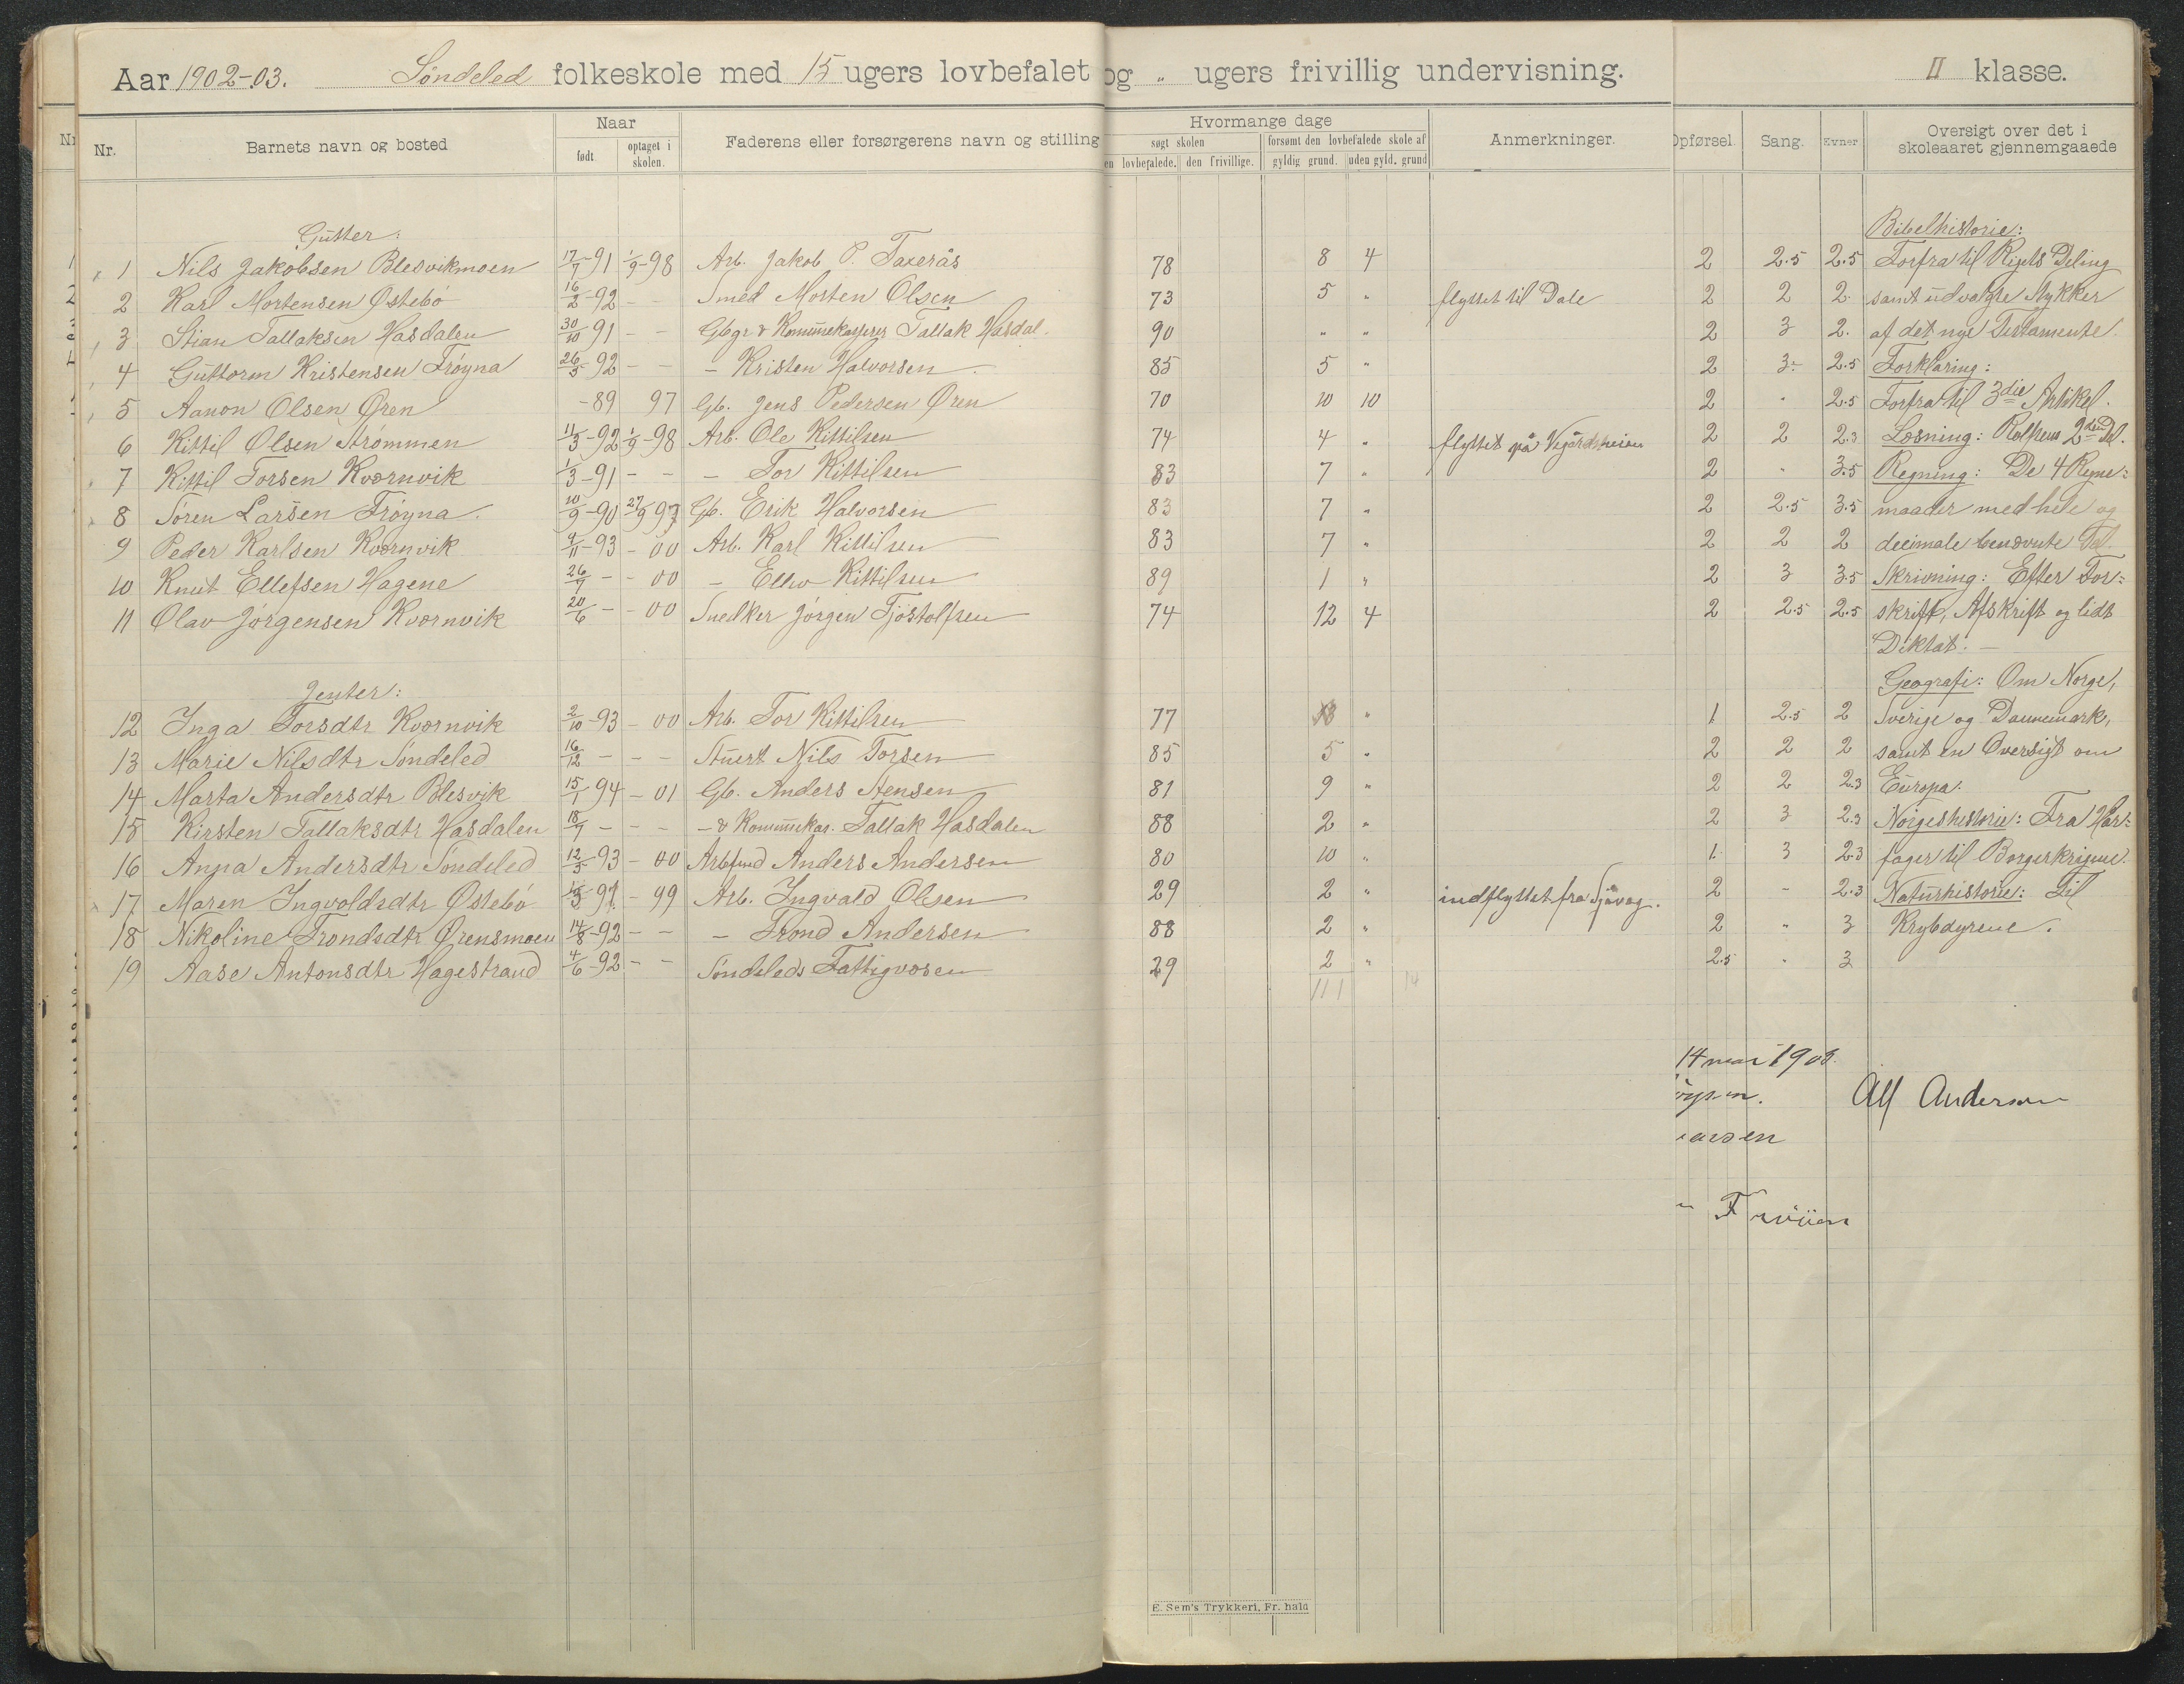 Aar 1902-03. Søndeled folkeskole med 15 ugers lovbefalet og " ugers frivillig undervisning. II klasse.
Nr. Barnets navn og bosted Naar født optaget i skolen. Faderens eller forsørgerens navn og stilling Hvormange dage søgt skolen en lovbefalede. den frivillige. forsømt den lovbefalede skole af gyldig grund. uden gyld. grund Anmerkninger. Opførsel. Sang. Evner Oversigt over det i skoleaaret gjennemgaaede
Gutter: Bibelhistorie:
1 Nils Jakobsen Blesvikmoen 17/7-91 1/9-98 Arb. Jakob P. Taxerås 78 8 4 2 2.5 2.5 Forfra til Rigets Deling
2 Karl Mortensen Østebö 16/2-92 - - Smed Morten Olsen 73 5 " flyttet til Dale 2 2 2. samt udvalgte Stykker
3 Stian Tallaksen Hasdalen 30/10 91 - - Gbgr & Kommunekasserer Tallak Hasdal. 90 " " 2 3 2. af det nye Testamente.
4 Guttorm Kristensen Frøyna 26/5-92 - - - Kristen Halvorsen 85 5 " 2 3- 2.5 Forklaring:
5 Aanon Olsen Øren -89 97 Gb. Jens Pedersen Øren 70 10 10 2 " 2.5 Forfra til 3die Artikel.
6 Kittil Olsen Strømmen 11/3-92 1/9-98 Arb. Ole Kittilsen 74 4 " flyttet på Vegårdsheien 2 2 2.3 Læsning: Rolfsens 2den Del.
7 Kittil Torsen Kvørnvik 1/3-91 - - - Tor Kittilsen 83 7 " 2 " 3.5 Regning: De 4 Regne=
8 Søren Larsen Frøyna. 10/9-90 27/9 97 Gb. Erik Halvorsen 83 7 " 2 2.5 3.5 maader med hele og
9 Peder Karlsen Kvørnvik 9/11-93 - 00 Arb. Karl Kittilsen 83 7 " 2 2 2 decimale benævnte Tal.
10 Knut Ellefsen Hagene 26/7 - - 00 - Ellev Kittilsen 89 1 " 2 3 3.5 Skrivning: Efter For=
11 Olav Jörgensen Kvørnvik 20/6 - - 00 Snedker Jörgen Tjöstolfsen 74 12 4 2 2.5 2.5 skrift, Afskrift og lidt
Diktat. -
Jenter: Geografi: Om Norge,
12 Inga Torsdtr Kvørnvik 2/10-93 - 00 Arb. Tor Kittilsen 77 " 1 2.5 2 Sverige og Dannemark,
13 Marie Nilsdtr Söndeled 16/12 - - - Stuert Nils Torsen 85 5 " 2 2 2 samt en Oversigt om
14 Marta Andersdtr Blesvik 15/1 94 - 01 Gb. Anders Stensen 81 9 " 2 2 2.3 Europa.
15 Kirsten Tallaksdtr Hasdalen 18/7 - - - - & Kommunekas. Tallak Hasdalen 88 2 " 2 3 2.3 Norgeshistorie: Fra Haar=
16 Anna Andersdtr Söndeled 12/5-93 - 00 Anders Andersen 80 10 " 1 3 2.3 fager til Borgerkrigene.
17 Maren Ingvoldsdtr Østebö - 99 Arb. Ingvald Olsen 29 2 " indflyttet fra 2 - 2.3 Naturhistorie: Til
18 Nikoline Trondsdtr Ørensmoen 14/8-92 - - - Trond Andersen 88 2 " 2 " 3 Krybdyrene.
19 Aase Antonsdtr Hagestrand 4/6-92 - - Söndeleds Fattigvæsen 29 2 " 2.5 " 3
111 14
14 mai 1903.
Alf Andersen
E. Sem's Trykkeri, Fr. hald